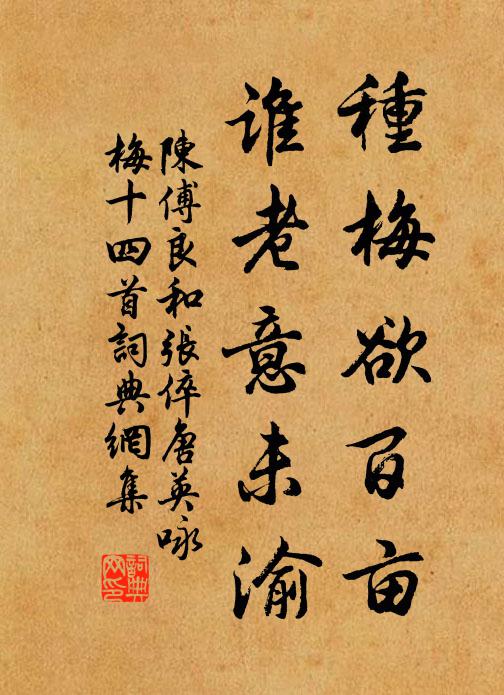 種梅欲百亩
谁老意未渝
陳傅良和張倅唐英咏
梅十四首詞典網集
詞典
网印